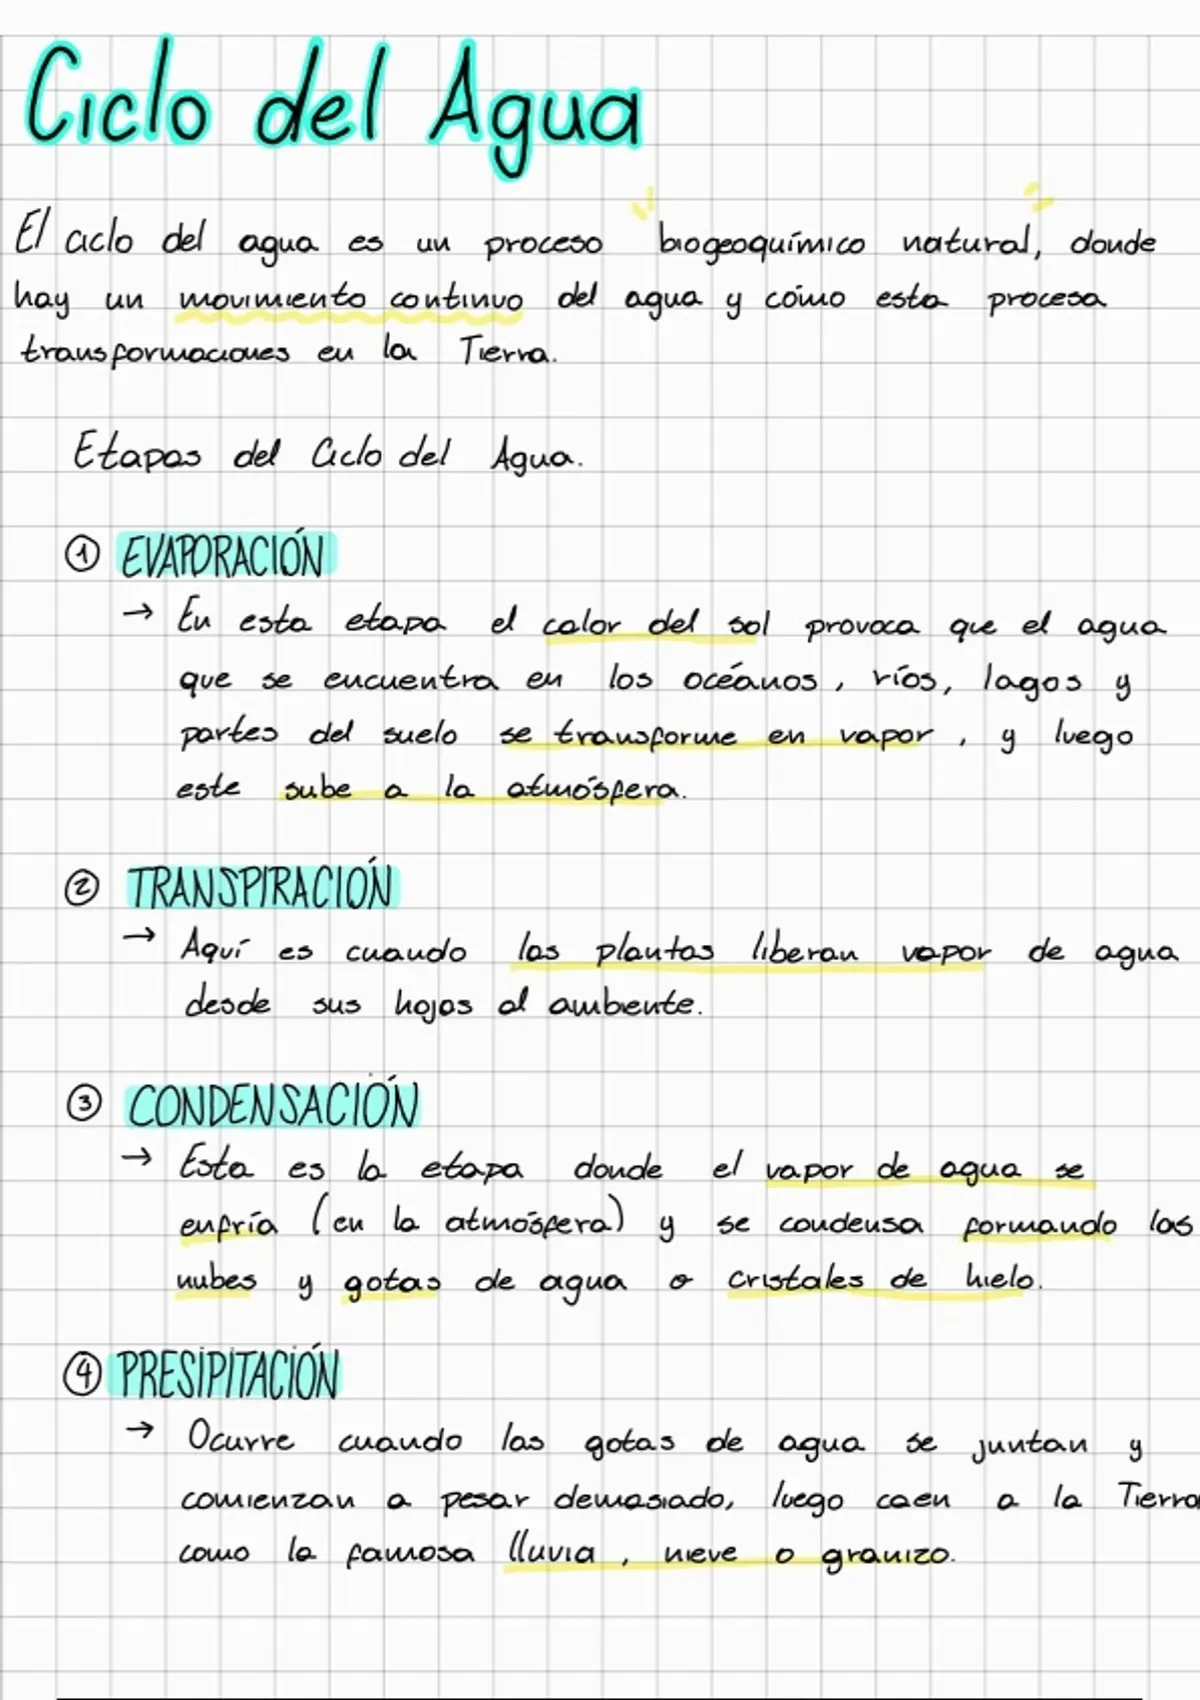 Ciclo del Agua
El ciclo del agua es un proceso biogeoquímico natural, donde
hay un movimiento continuo del agua y cómo esta procesa
transformaciones en la Tierra.
Etapas del Ciclo del Agua.
① EVAPORACIÓN
→ En esta etapa el calor del sol provoca que el agua
que se encuentra en los océanos, ríos, lagos y
partes del suelo se transforme en vapor, y luego
este sube a la atmósfera.
② TRANSPIRACIÓN
→ Aquí es cuando las plantas liberan vapor de agua
desde sus hojas al ambiente.
③ CONDENSACIÓN
→ Esta es la etapa donde el vapor de agua se
enfría (en la atmósfera) y se condensa formando las
nubes y gotas de agua o cristales de hielo.
④ PRESIPITACIÓN
→ Ocurre cuando las gotas de agua se juntan y
comienzan a pesar demasiado, luego caen a la Tierra
como la famosa lluvia, nieve o granizo.